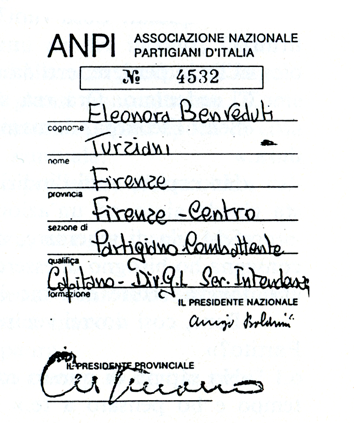 ANPI ASSOCIAZIONE NAZIONALE
PARTIGIANI D'ITALIA
No 4532
Eleonora Benveduti
cognome
Turziani
nome
Firenze
provincia
Firenze - Centro
sezione di
Partigiano Combattente
qualifica
Capitano - Dir. g.l. Ser. Intendenza
formazione
IL PRESIDENTE NAZIONALE
Arrigo Boldrini
IL PRESIDENTE PROVINCIALE